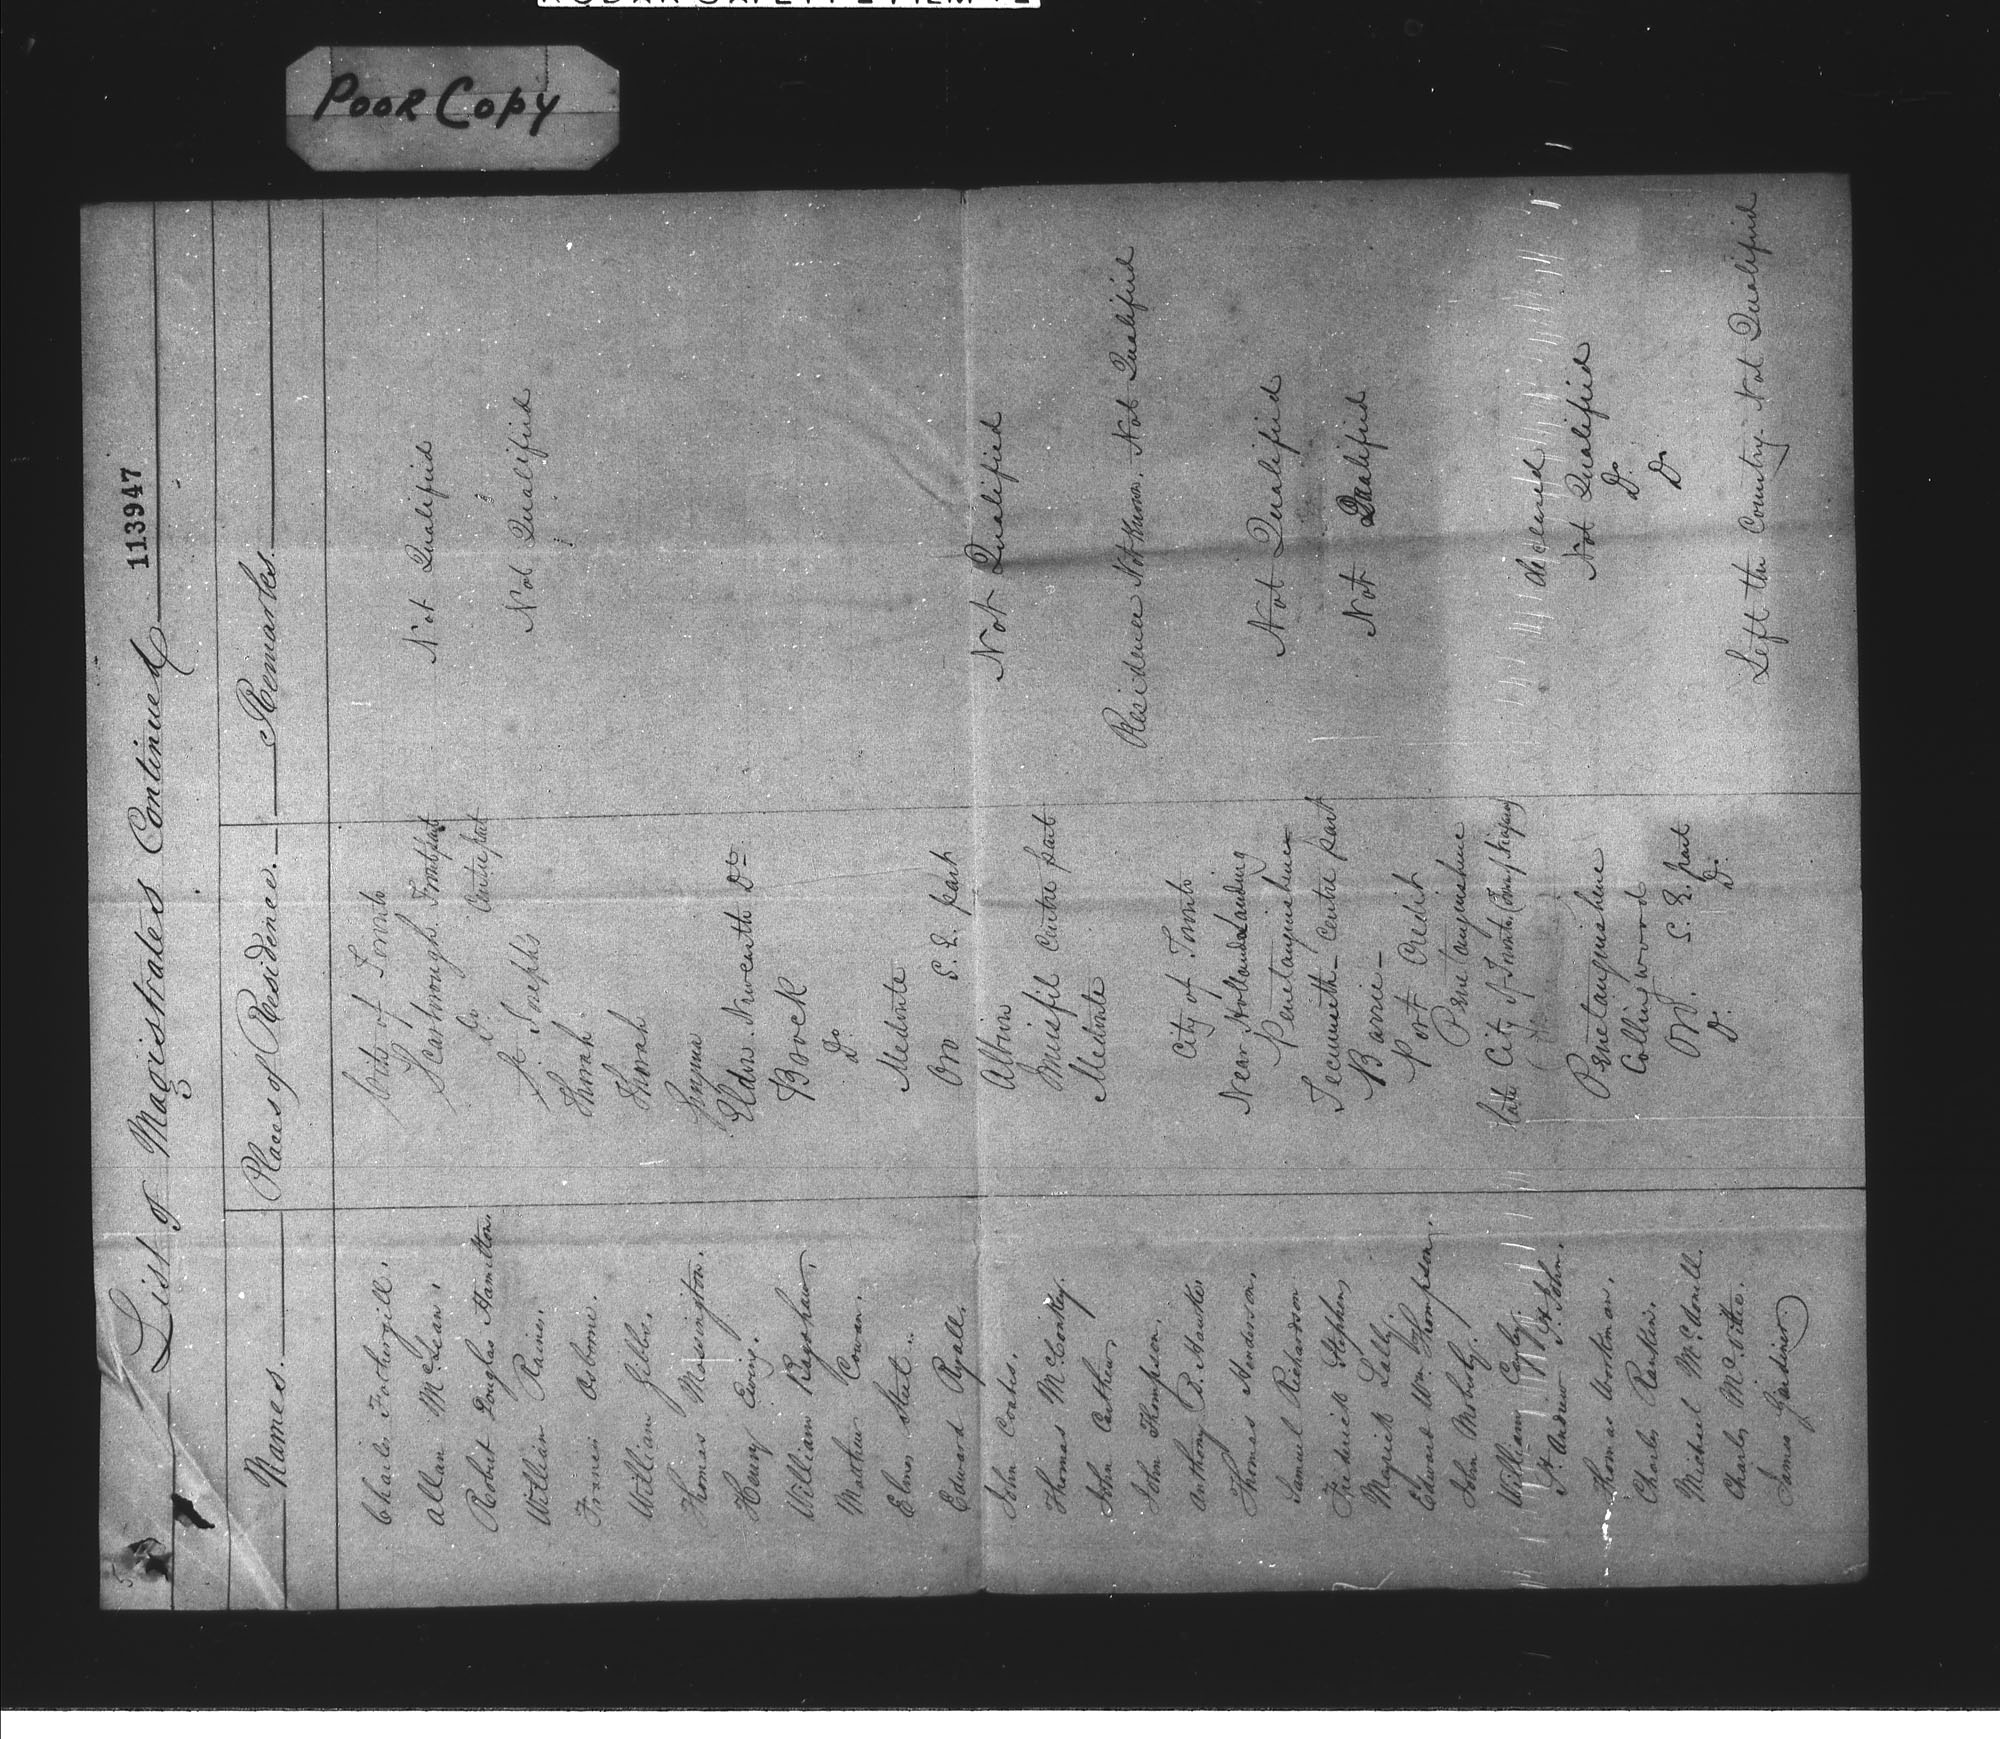 KODAK SAFETY FILM
POOR COPY
113947
List of Magistrates Continued
Names. Places of Residence. Remarks.
Charles Fothergill. City of Toronto
Allan McLean. Scarborough. Front part Not Qualified
Robert Douglas Hamilton. Do Centre part
William Raines. St Josephs Not Qualified
Francis Osborne. Thorah
William Gibbs. Thorah
Thomas Mosington. Georgina
Henry Ewing. Eldon. Newcastle Do
William Bagshaw. Brock
Matthew Cowan. Do
Elmes Steel. Medonte
Edward Ryall. Oro S. E. part
John Coates. Albion Not Qualified
Thomas McConkey. Innisfil Centre part
John Carthew Medonte
John Thompson. Residence Not Known. Not Qualified
Anthony B. Hawke. City of Toronto
Thomas Henderson. Near Holland Landing
Samuel Richardson Penetanguishene Not Qualified
Frederick Stephens Tecumseth Centre part
Meyrick Lally. Barrie Not Qualified
Edward Wm. Thompson. Port Credit
John Moberly. Penetanguishene
William Cayley. City of Toronto
St. Andrew St. John. deceased
Thomas Workman. Penetanguishene Not Qualified
Charles Rankin. Collingwood Do
Michael McDonell. Oro. S. E. part Do
Charles McVitie. Do. Do.
James Gardiner Left the Country. Not Qualified